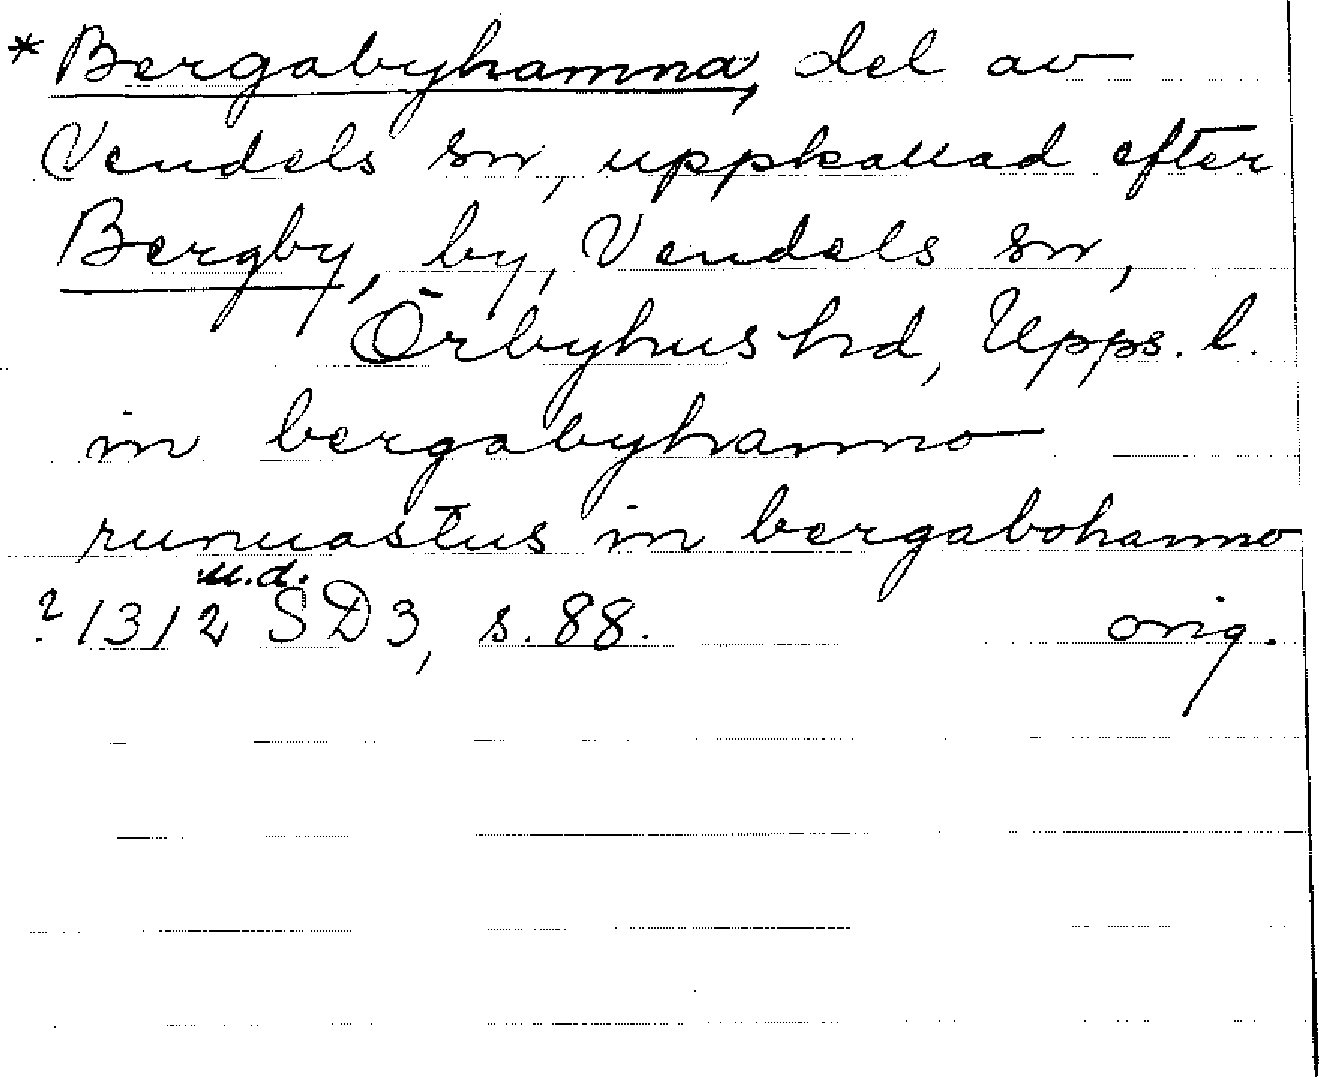 * Bergabyhamna, del av
Vendels sn, uppkallad efter
Bergby, by, Vendels sn,
Örbyhus hd, Upps. l.
in bergabyhamno
runuastus in bergabohamno
u.d.
? 1312 SD3, s. 88. orig.